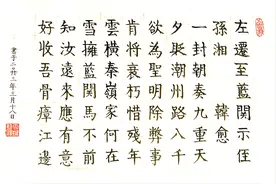 左遷至藍關示侄
孫湘 韓愈
一封朝奏九重天
夕貶潮州路八千
欲為聖明除弊事
肯將衰朽惜殘年
雲橫秦嶺家何在
雪擁藍關馬不前
知汝遠來應有意
好收吾骨瘴江邊
書于二年三月十八日